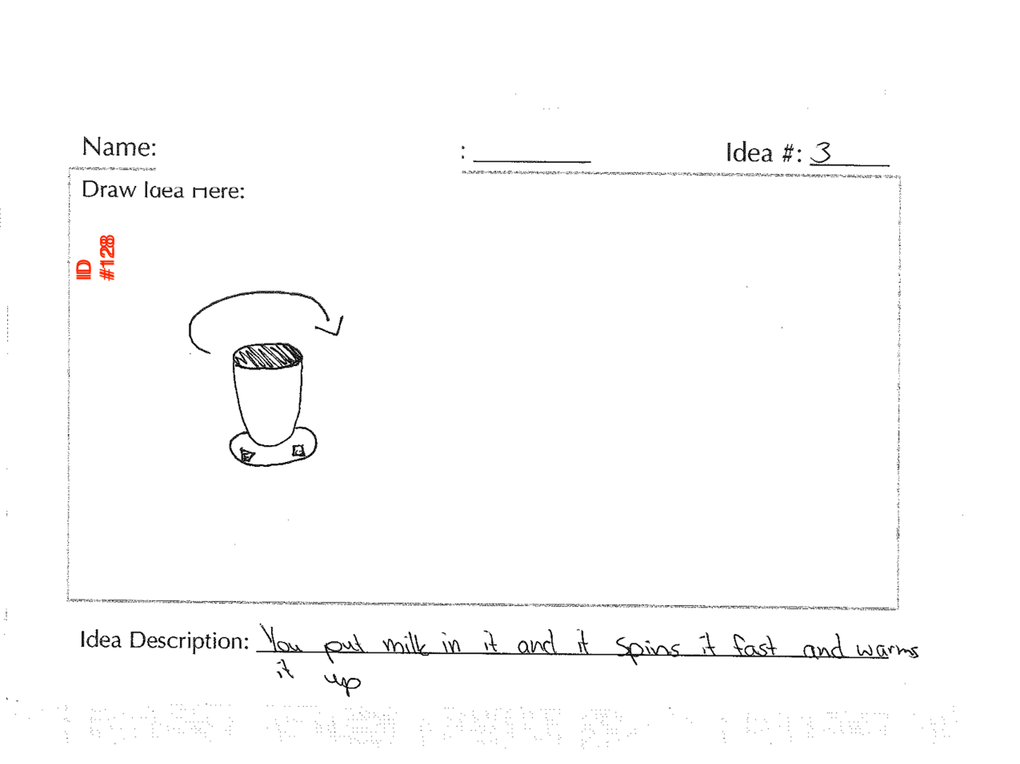 Name:
: Idea #: 3
Draw Idea Here:
IID
#128
Idea Description: You put milk in it and it spins it fast and warms
it up